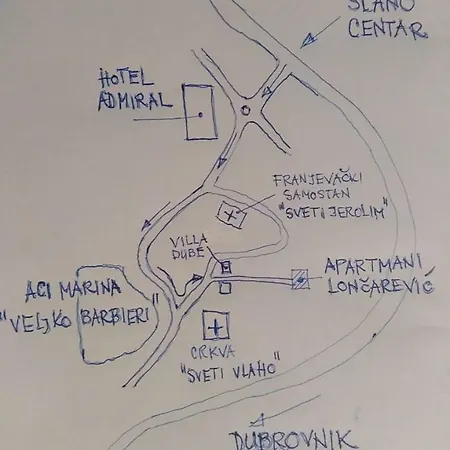 SLANO
CENTAR
HOTEL
ADMIRAL
FRANJEVAČKI
SAMOSTAN
"SVETI JEROLIM"
VILLA
DUBE
APARTMANI
LONČAREVIĆ
ACI MARINA
"VELJKO BARBIERI"
CRKVA
"SVETI VLAHO"
DUBROVNIK